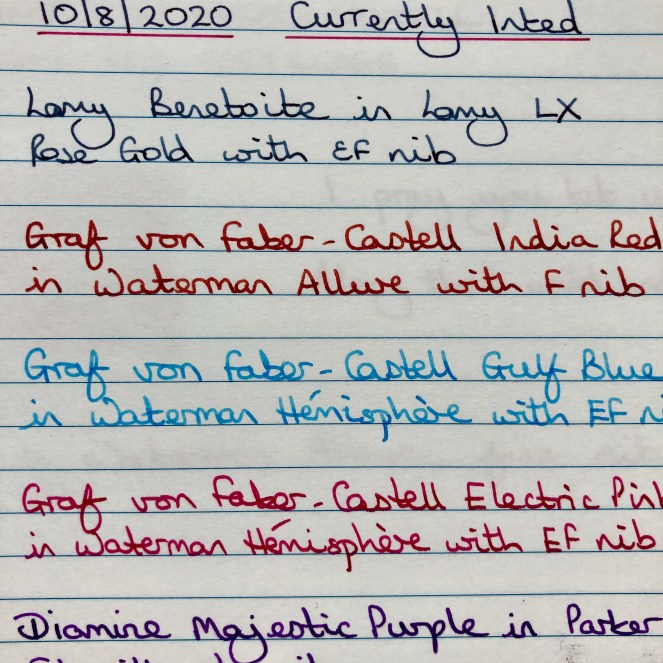 10/8/2020 Currently Inked
Lamy Benitoite in Lamy LX
Rose Gold with EF nib
Graf von Faber-Castell India Red
in Waterman Allure with F nib
Graf von Faber-Castell Gulf Blue
in Waterman Hémisphère with EF
Graf von Faber-Castell Electric Pin
in Waterman Hémisphère with EF nib
Diamine Majestic Purple in Parker